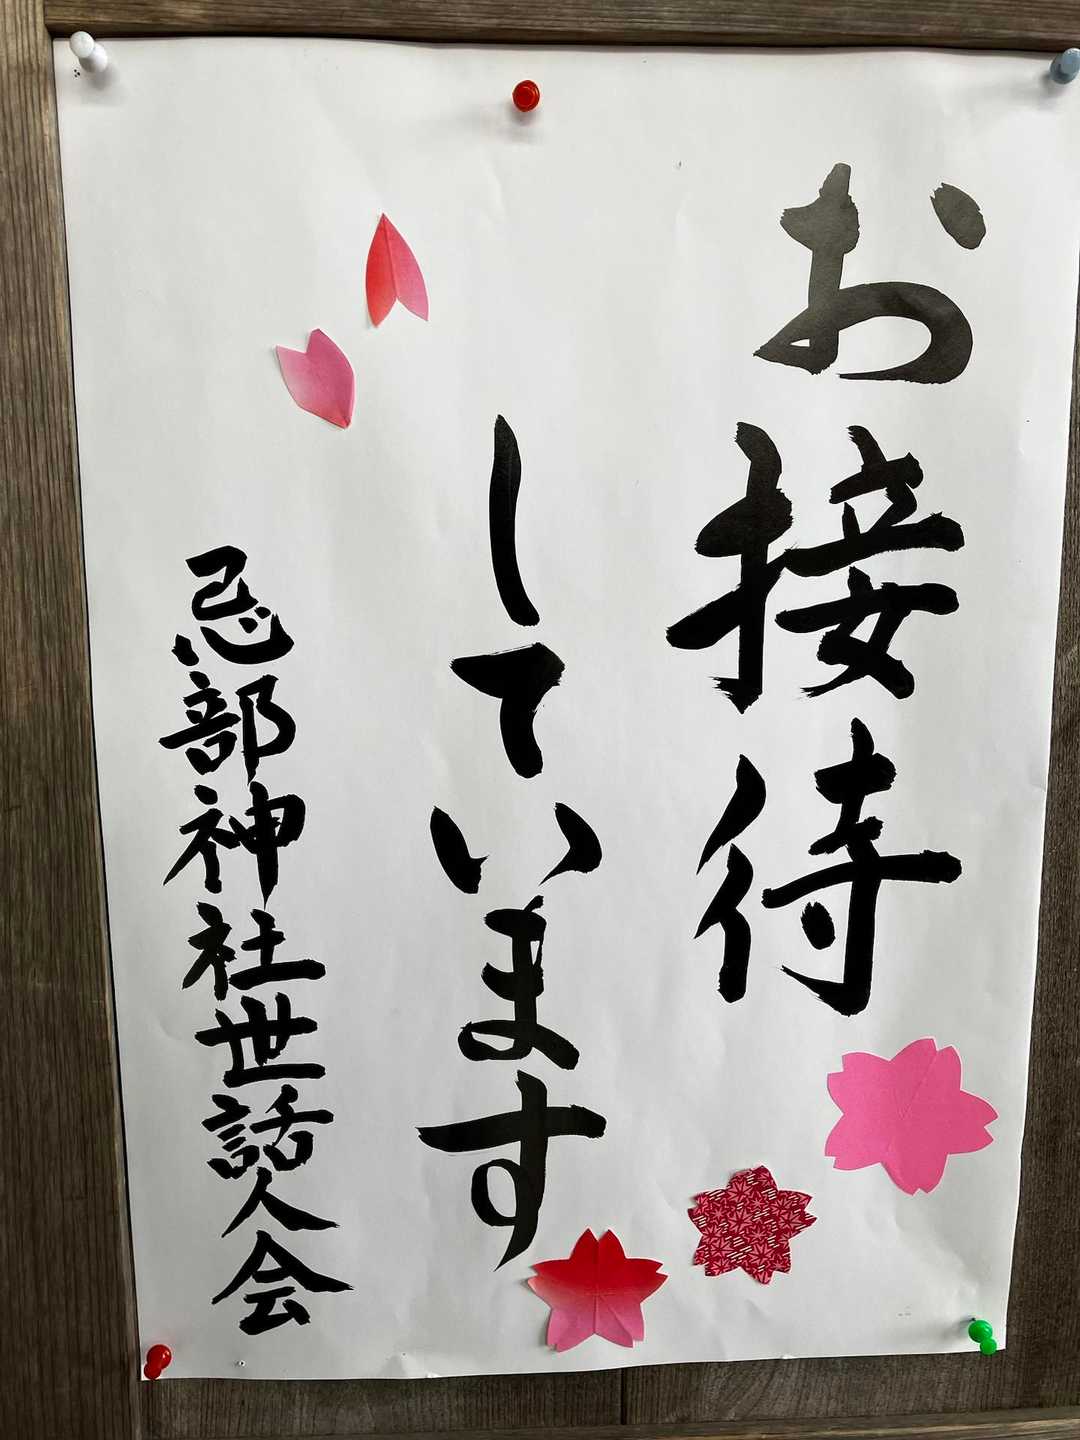 お接待
しています
忌部神社世話人会